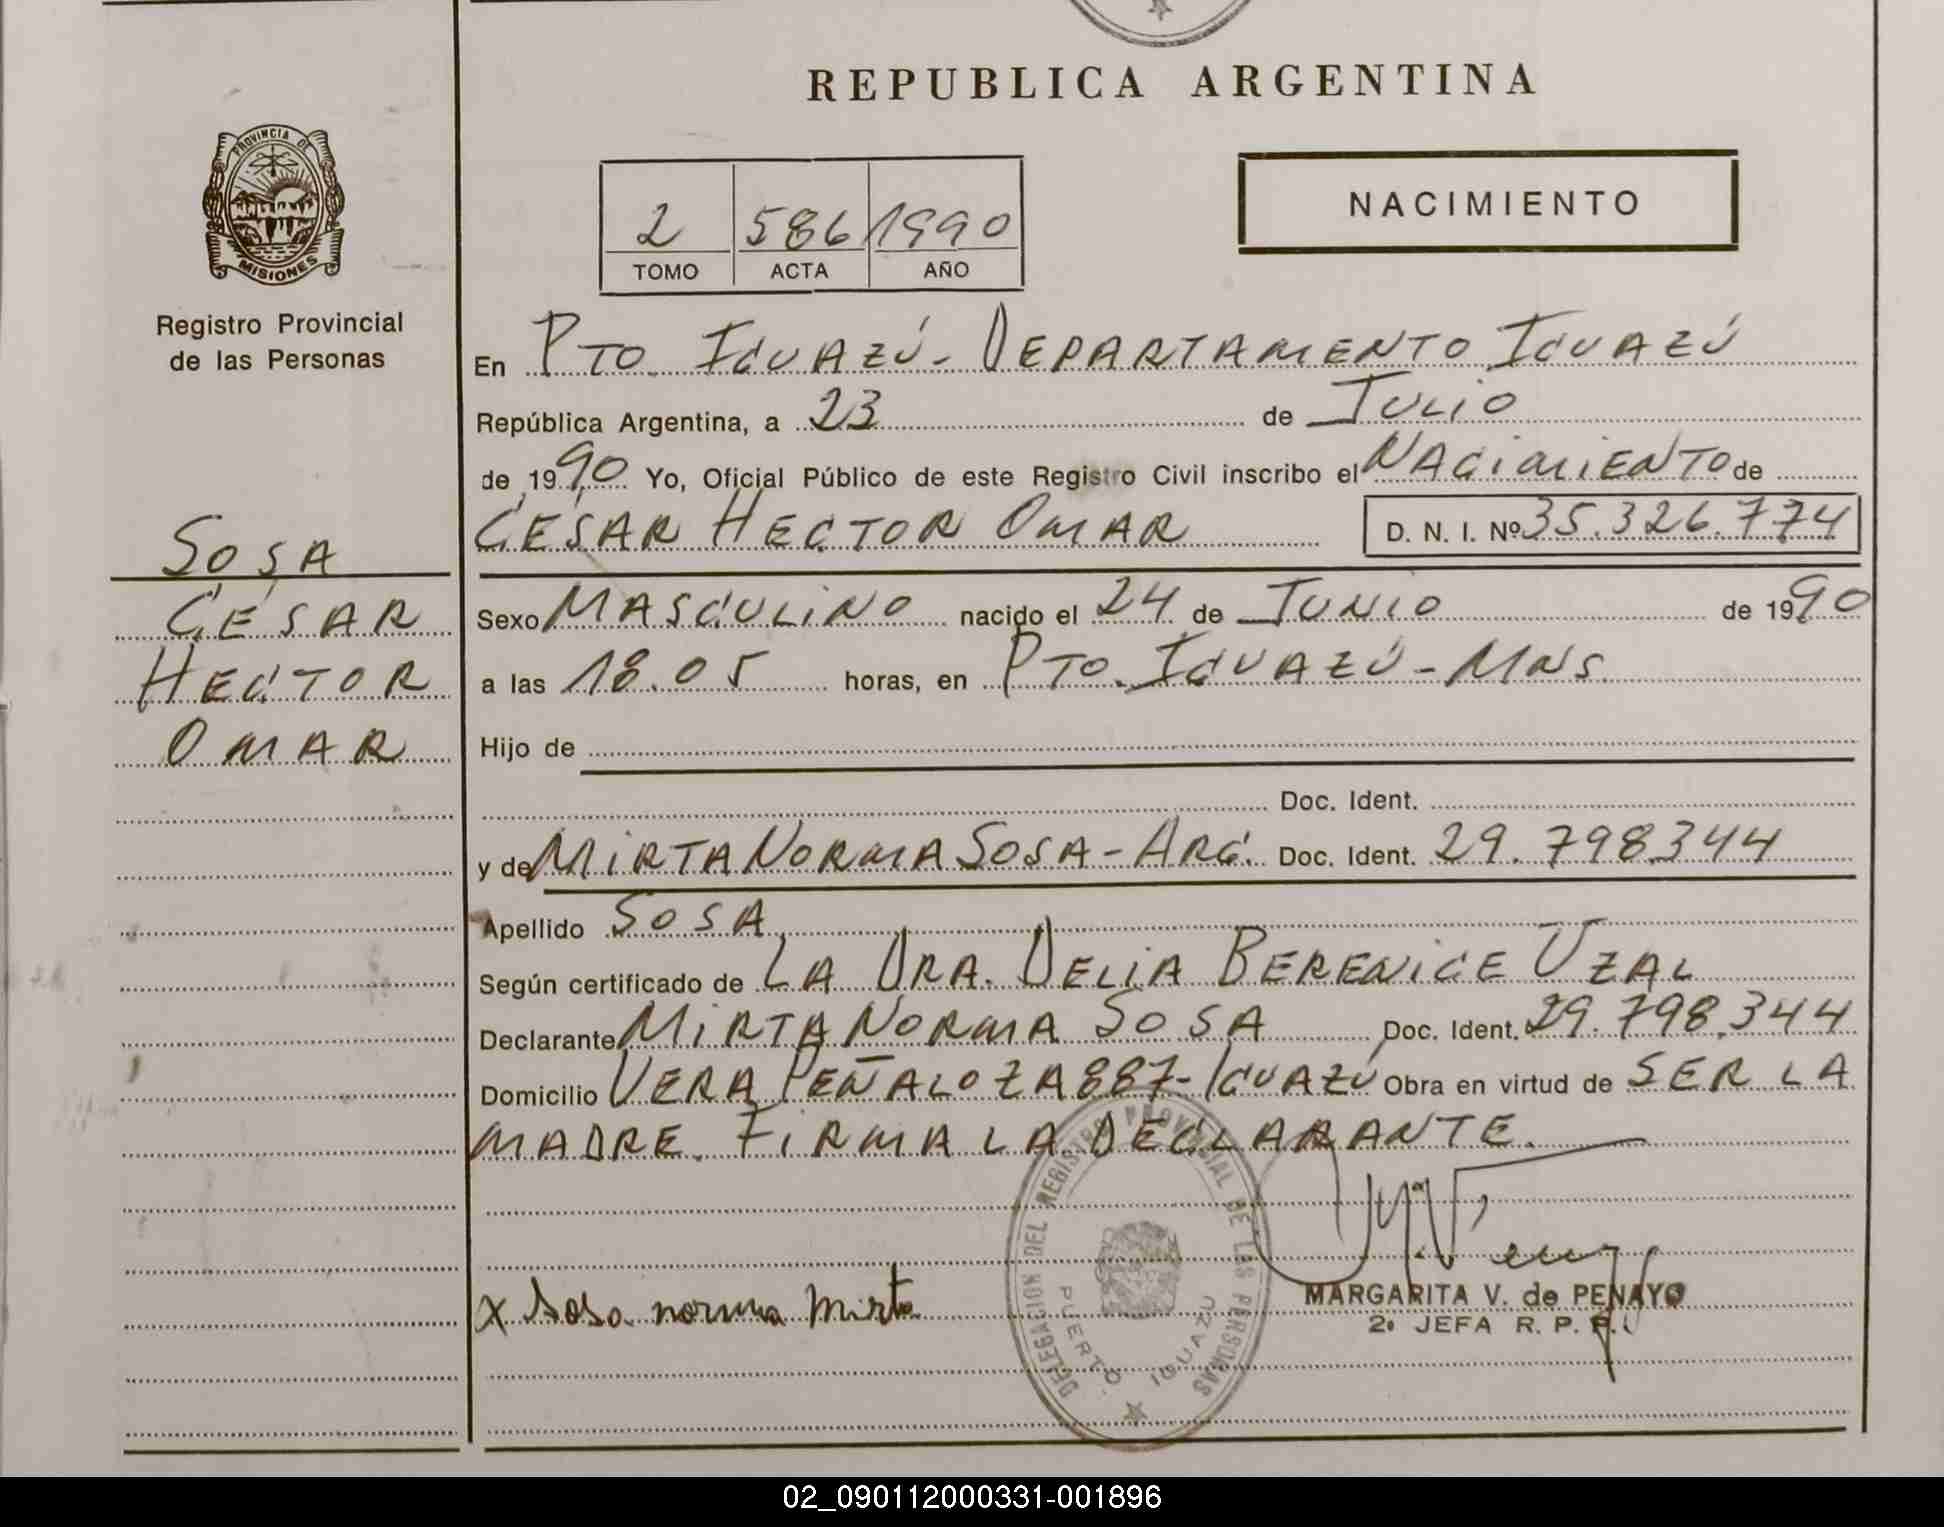 REPUBLICA ARGENTINA
PROVINCIA DE
MISIONES
Registro Provincial
de las Personas
2 586 1990
TOMO ACTA AÑO
NACIMIENTO
En PTO. IGUAZÚ - DEPARTAMENTO IGUAZÚ
República Argentina, a 23 de JULIO
de 1990 Yo, Oficial Público de este Registro Civil inscribo el NACIMIENTO de
CÉSAR HECTOR OMAR D. N. I. Nº 35.326.774
SOSA
CÉSAR
HECTOR
OMAR
Sexo MASCULINO nacido el 24 de JUNIO de 1990
a las 18.05 horas, en PTO. IGUAZÚ - MNS.
Hijo de
Doc. Ident.
y de MIRTA NORMA SOSA - ARG. Doc. Ident. 29.798.344
Apellido SOSA
Según certificado de LA DRA. DELIA BERENICE UZAL
Declarante MIRTA NORMA SOSA Doc. Ident. 29.798.344
Domicilio VERA PEÑALOZA 887 - IGUAZÚ Obra en virtud de SER LA
MADRE. FIRMA LA DECLARANTE.
DELEGACION DEL REGISTRO PROVINCIAL DE LAS PERSONAS
PUERTO IGUAZU
x Sosa norma Mirta
MARGARITA V. de PENAYO
2º JEFA R. P. P.
02_090112000331-001896